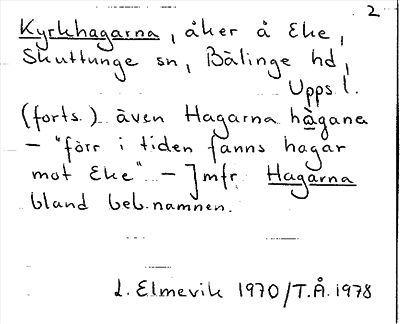 2
Kyrkhagarna, åker å Eke,
Skuttunge sn, Bälinge hd,
Upps. l.
(forts.) även Hagarna hàgana
– "förr i tiden fanns hagar
mot Eke" – ] mfr. Hagarna
bland beb.namnen.
L. Elmevik 1970/T.Å. 1978